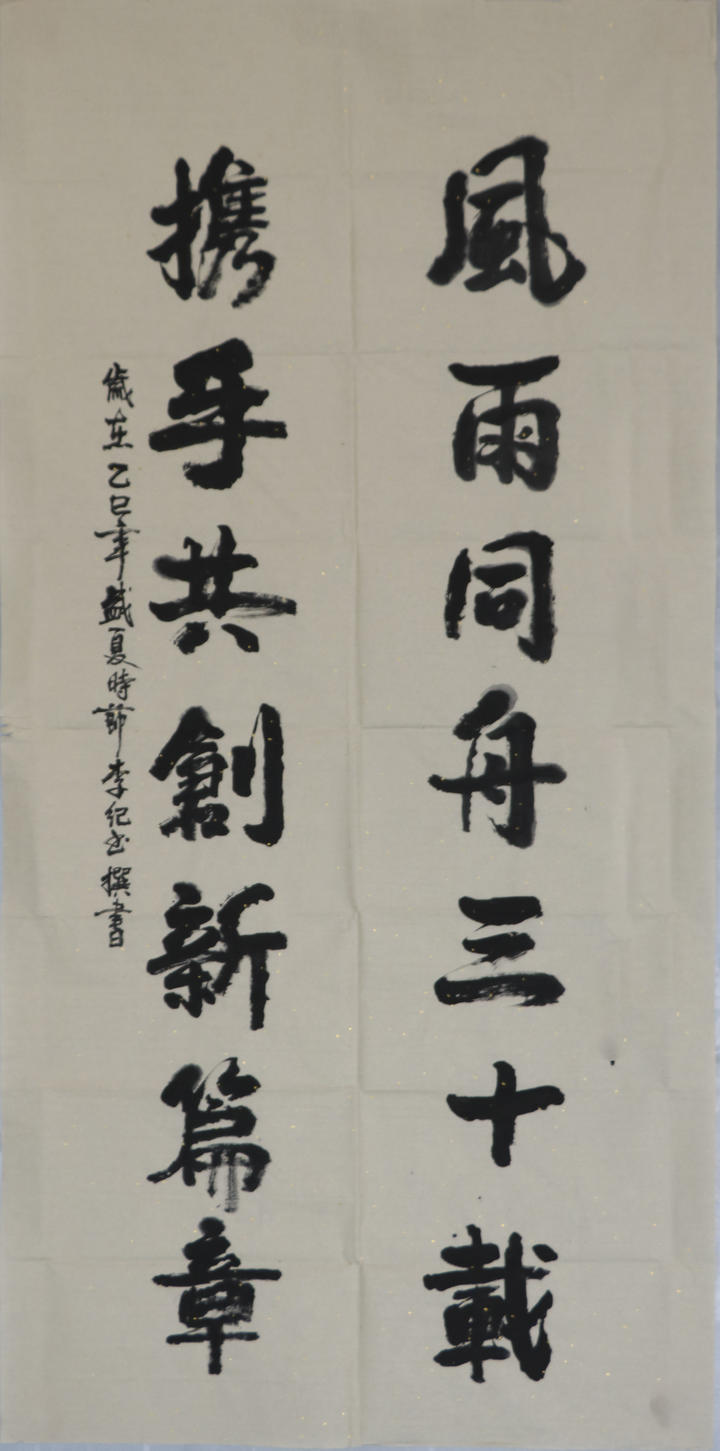 風雨同舟三十載
携手共創新篇章
歲在乙巳年盛夏時節李紀出撰書